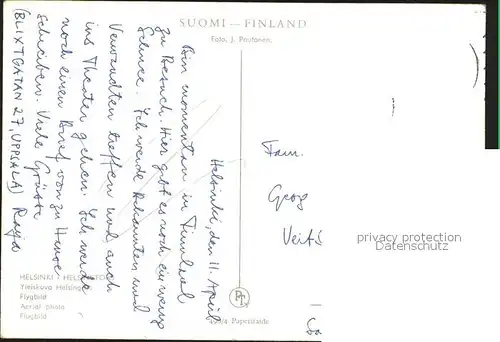 SUOMI — FINLAND
Foto, J. Poutanen.
Helsinki, den 11. April
Bin momentan in Finnland
zu Besuch. Hier gibt es noch ein wenig
Schnee. Ich werde Bekannten und
Verwandten treffen und auch
ins Theater gehen. Ich werde
noch einen Brief von zu Hause
schreiben. Viele Grüsse
(BLIXTGATAN 27, UPPSALA) Raija
Fam.
Georg
Veits
privacy protection
Datenschutz
HELSINKI - HELSINGFORS
Yleiskuva Helsingistä
Flygbild
Aerial photo
Flugbild
Paperitaide